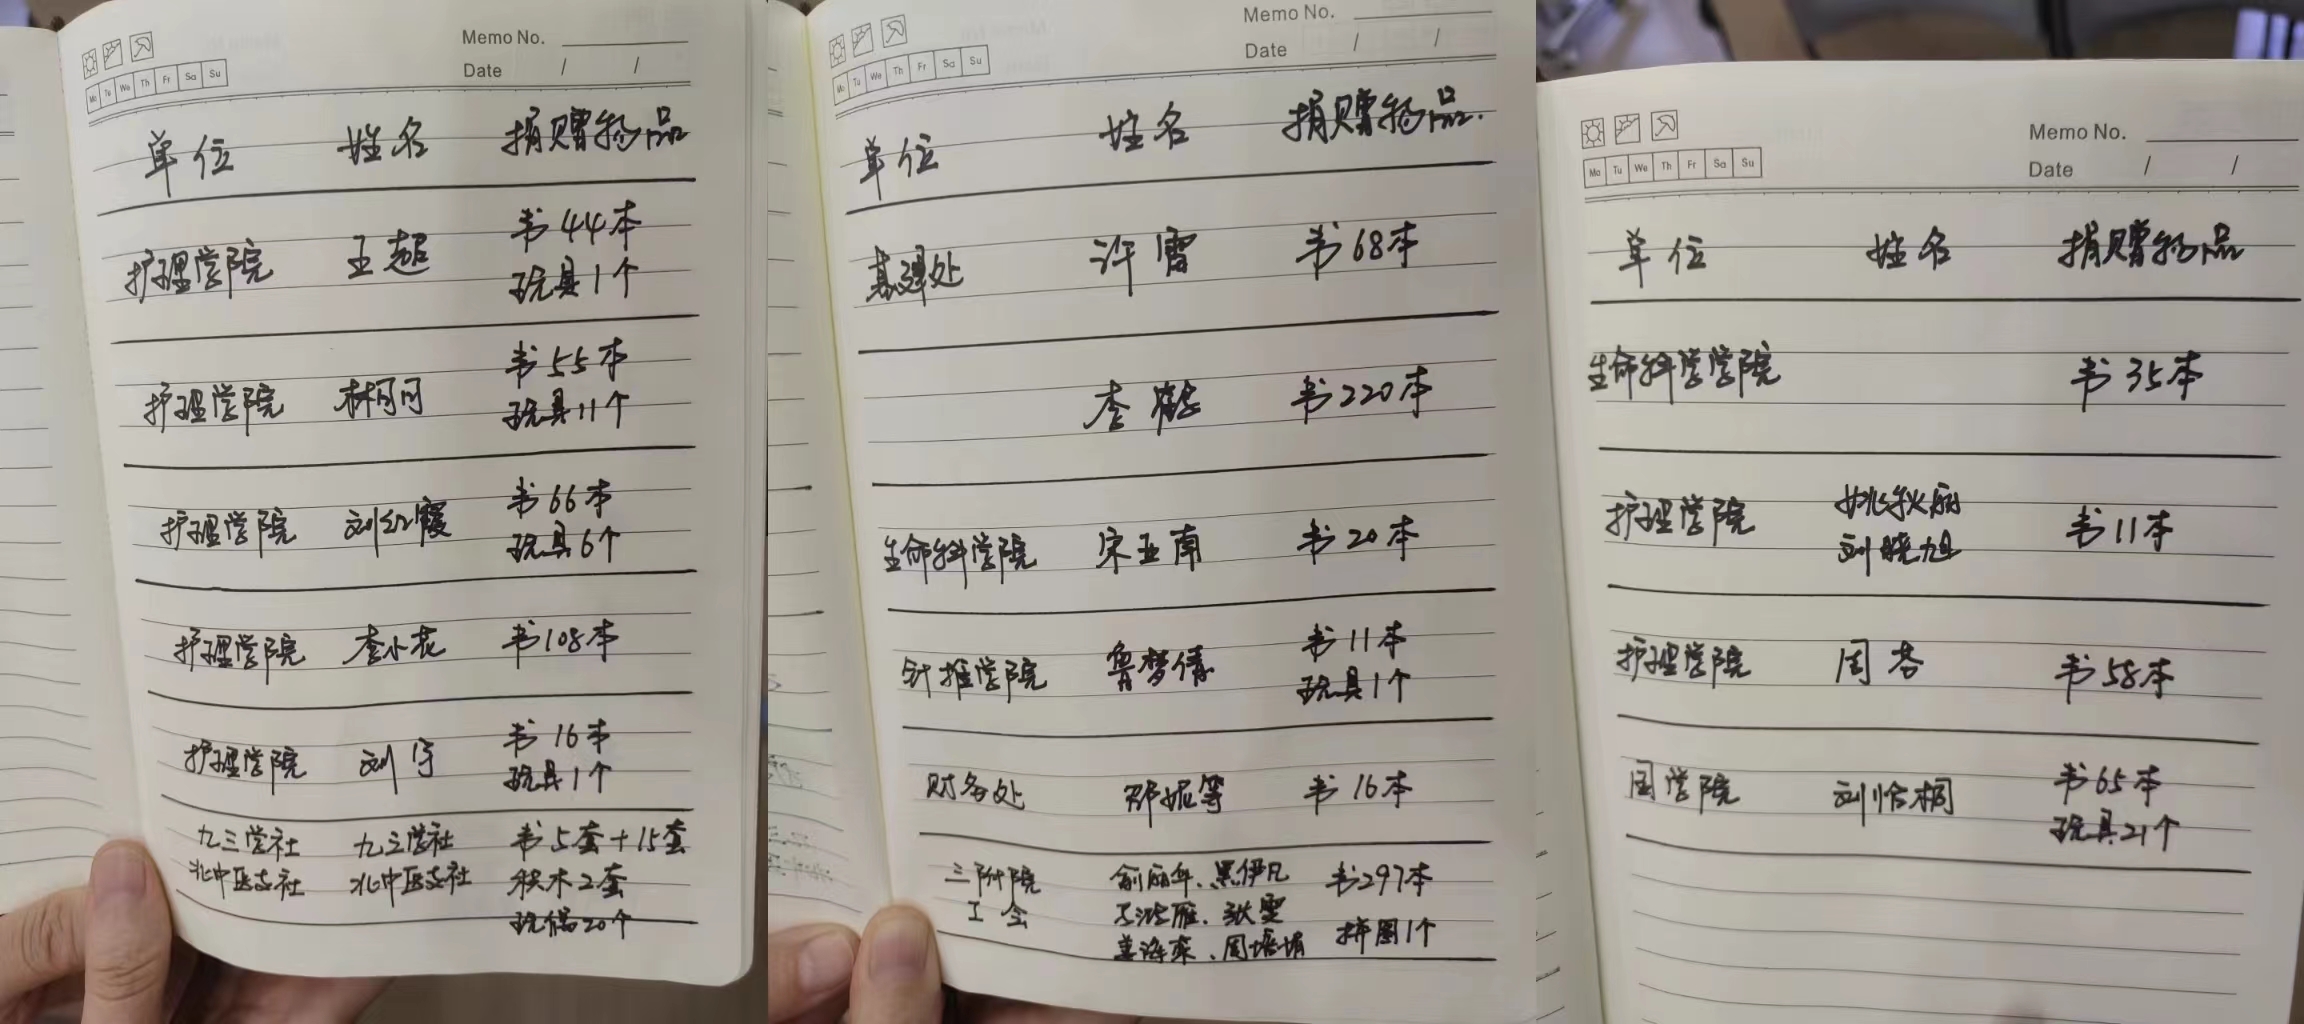 Memo No.
Date / /
Mo Tu We Th Fr Sa Su
单位 姓名 捐赠物品
护理学院 王超 书44本
玩具1个
护理学院 林可可 书55本
玩具11个
护理学院 刘红霞 书66本
玩具6个
护理学院 李小花 书108本
护理学院 刘宇 书16本
玩具1个
九三学社 九三学社 书5套+15套
北中医支社 北中医支社 积木2套
玩偶20个
Memo No.
Date / /
Mo Tu We Th Fr Sa Su
单位 姓名 捐赠物品
基建处 许雷 书68本
李鹤 书220本
生命科学院 宋亚南 书20本
针推学院 鲁梦倩 书11本
玩具1个
财务处 邓妮等 书16本
三附院 俞丽华、黑伊凡 书297本
工会 雁、张雯
周培培 拼图1个
Memo No.
Date / /
Mo Tu We Th Fr Sa Su
单位 姓名 捐赠物品
生命科学学院 书35本
护理学院 姚秋丽 书11本
刘晓旭
护理学院 周芬 书58本
国学院 刘怡桐 书65本
玩具21个